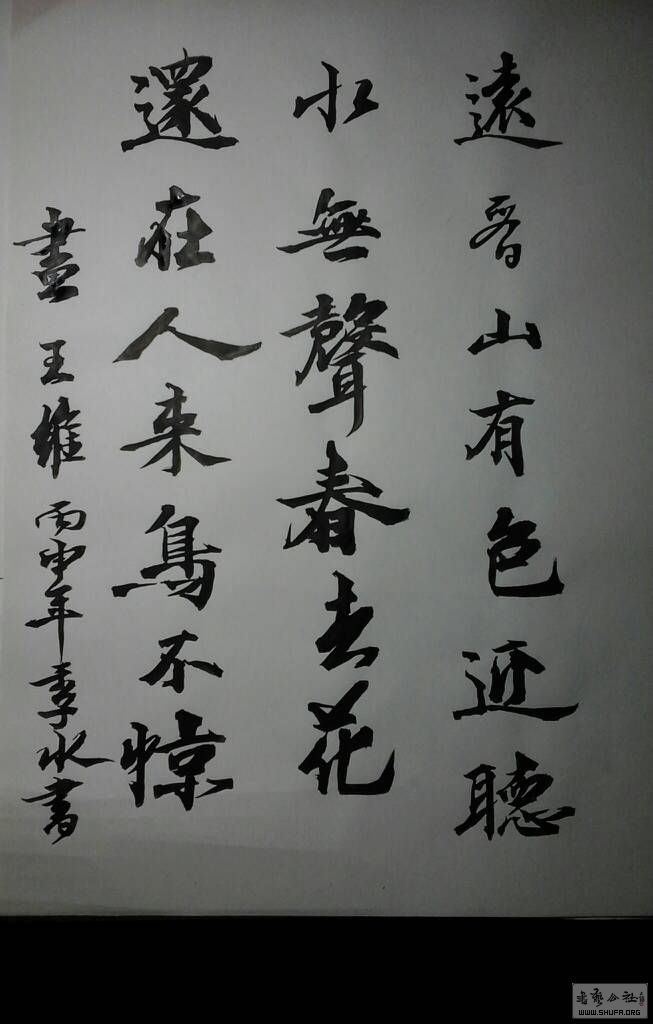 遠看山有色近聽
水無聲春去花
還在人来鳥不惊
畫 王維 丙申年季水書
書藝公社
WWW.SHUFA.ORG